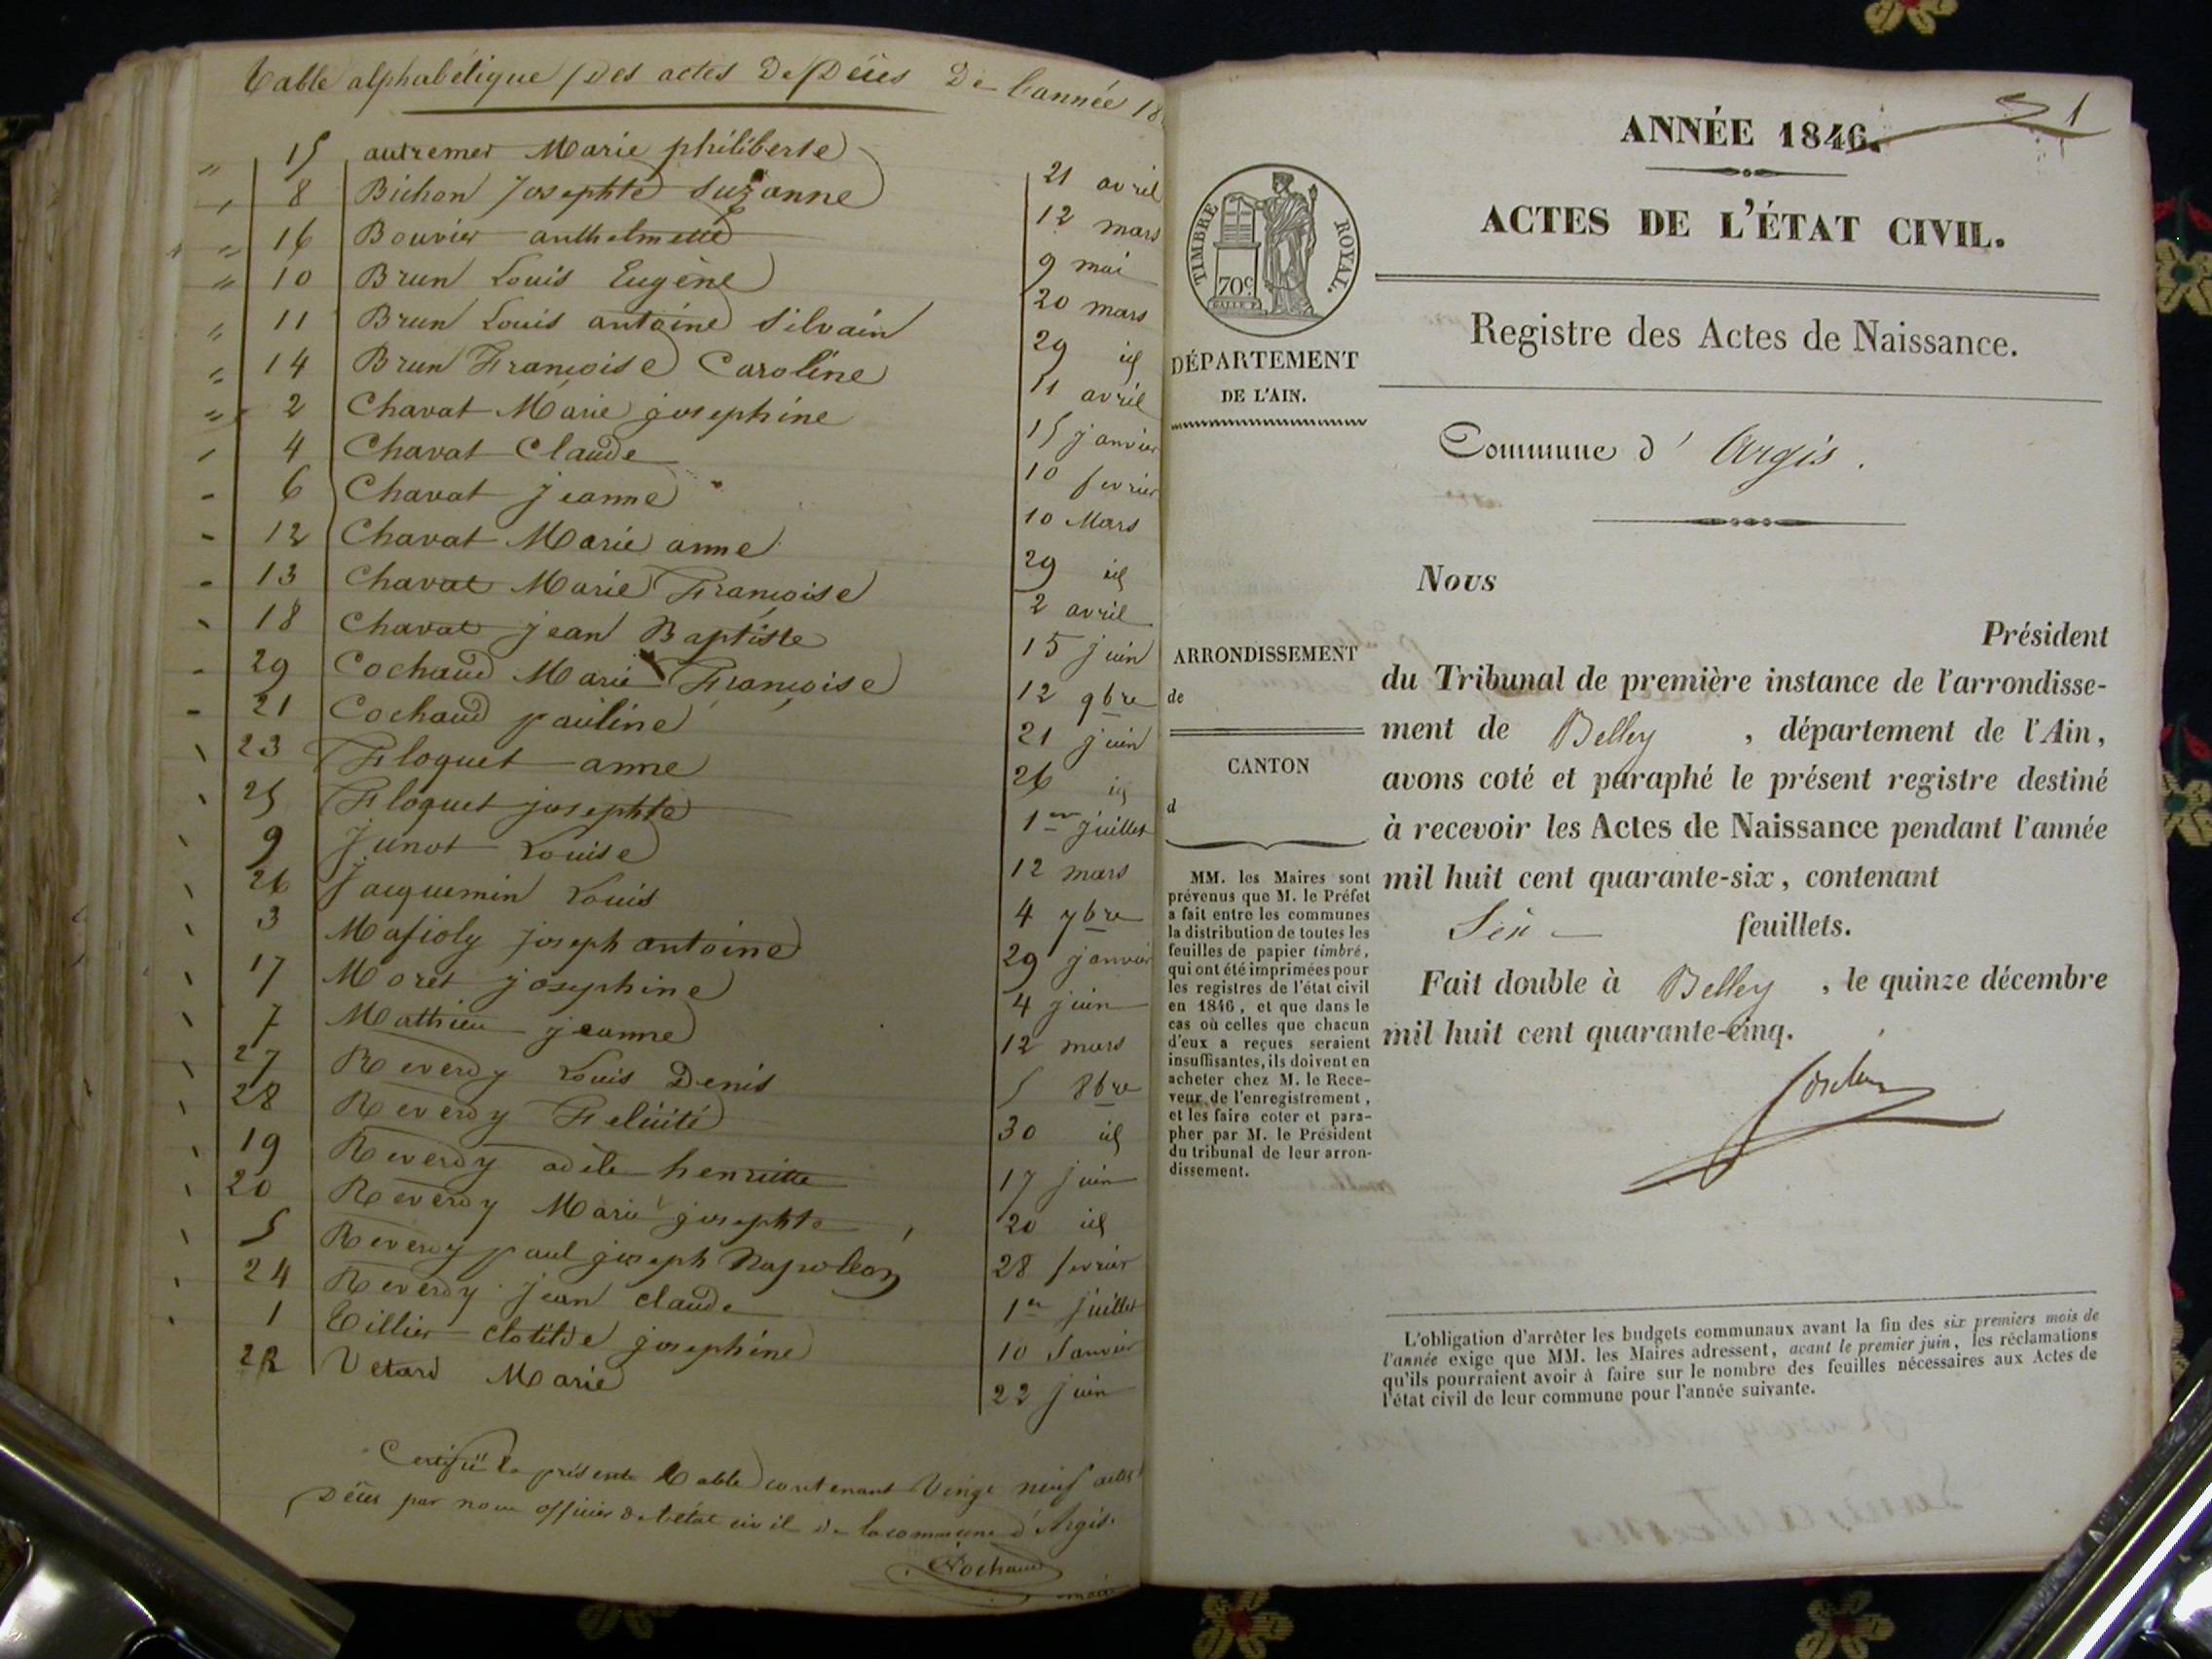 Table alphabétique Des actes De Décès De l'année 18
15 autremer Marie philiberte 21 avril
8 Bichon Josephte Suzanne 12 mars
16 Bouvier anthelmette 9 mai
10 Brun Louis Eugène 20 mars
11 Brun Louis antoine Silvain 29 id
14 Brun Françoise Caroline 11 avril
2 Chavat Marie josephine 15 janvier
4 Chavat Claude 10 fevrier
6 Chavat jeanne 10 Mars
12 Chavat Marie anne 29 id
13 Chavat Marie Françoise 2 avril
18 Chavat jean Baptiste 15 juin
29 Cochaud Marie Françoise 12 9bre
21 Cochaud pauline 21 juin
23 Floquet anne 26 id
25 Floquet josephte 1er juillet
9 Junot Louise 12 mars
26 Jacquemin Louis 4 7bre
3 Mafioly joseph antoine 29 janvier
17 Moret josephine 4 juin
7 Mathieu jeanne 12 mars
27 Reverdy Louis Denis 5 8bre
28 Reverdy Felicité 30 id
19 Reverdy adèle henriette 17 juin
20 Reverdy Marie josephte 20 id
5 Reverdy paul joseph Napoléon 28 fevrier
24 Reverdy jean claude 1er juillet
1 Tillier clotilde josephine 10 Janvier
22 Vetard Marie 22 juin
Certifié la présente Table contenant Vingt neuf actes
Décès par nous officier de l'état civil de la commune d'Argis.
Cochaud
maire
1
ANNÉE 1846.
ACTES DE L'ÉTAT CIVIL.
TIMBRE ROYAL.
70c
Registre des Actes de Naissance.
DÉPARTEMENT
DE L'AIN.
Commune d' Argis.
Nous
Président
ARRONDISSEMENT
de
CANTON
d
du Tribunal de première instance de l'arrondisse-
ment de Belley , département de l'Ain,
avons coté et paraphé le présent registre destiné
à recevoir les Actes de Naissance pendant l'année
mil huit cent quarante-six, contenant
Six feuillets.
Fait double à Belley , le quinze décembre
mil huit cent quarante-cinq.
MM. les Maires sont
prévenus que M. le Préfet
a fait entre les communes
la distribution de toutes les
feuilles de papier timbré,
qui ont été imprimées pour
les registres de l'état civil
en 1846, et que dans le
cas où celles que chacun
d'eux a reçues seraient
insuffisantes, ils doivent en
acheter chez M. le Rece-
veur de l'enregistrement,
et les faire coter et para-
pher par M. le Président
du tribunal de leur arron-
dissement.
L'obligation d'arrêter les budgets communaux avant la fin des six premiers mois de
l'année exige que MM. les Maires adressent, avant le premier juin, les réclamations
qu'ils pourraient avoir à faire sur le nombre des feuilles nécessaires aux Actes de
l'état civil de leur commune pour l'année suivante.